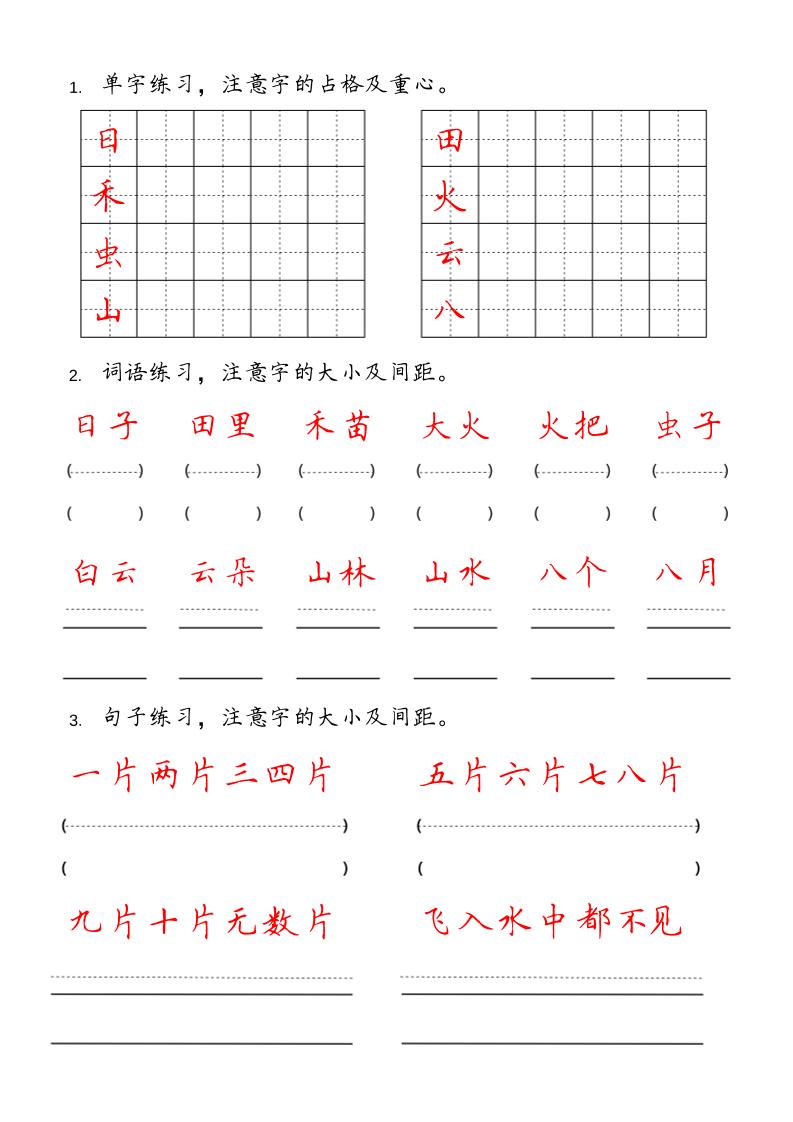 1. 单字练习，注意字的占格及重心。
日 田
禾 火
虫 云
山 八
2. 词语练习，注意字的大小及间距。
日子 田里 禾苗 大火 火把 虫子
( ) ( ) ( ) ( ) ( ) ( )
( ) ( ) ( ) ( ) ( ) ( )
白云 云朵 山林 山水 八个 八月
3. 句子练习，注意字的大小及间距。
一片两片三四片 五片六片七八片
( ) ( )
( ) ( )
九片十片无数片 飞入水中都不见